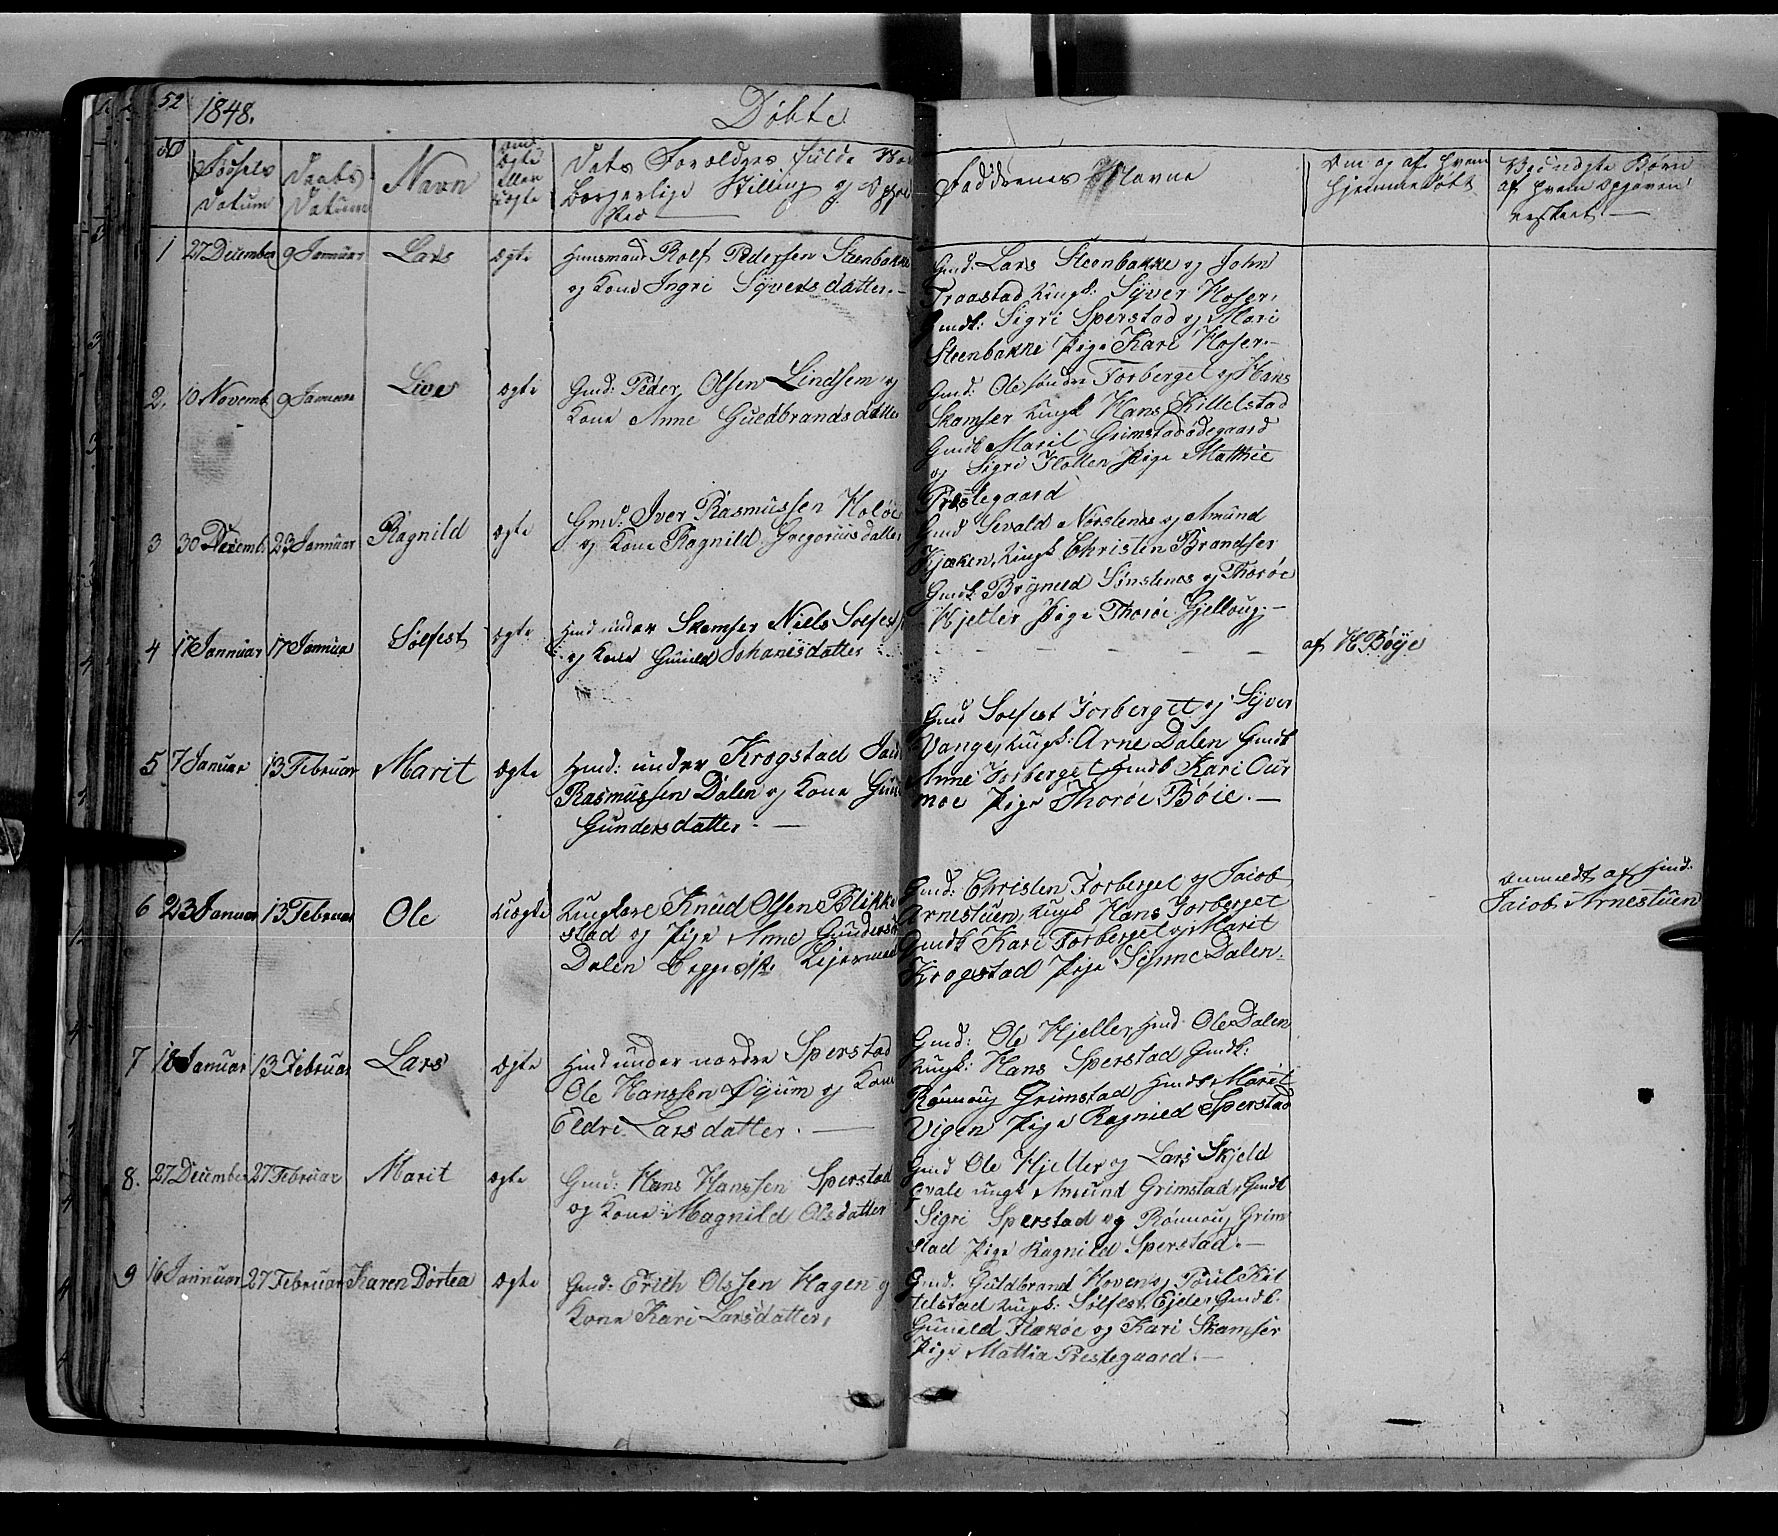 52 1848. Döbte
No Födsels Datum Daabs Datum Navn om Ægte Eller uægte Dets Forældres fulde Nav
Borgerlige Stilling og Ophol
sted
Faddrenes Navne
Om og af hvem
hjemmedöbt
Ved uægte Börn
af hvem Opgaven
er skeet
1 27 December 9 Januar Lars ægte Huusmand Rolf Pedersen Steenbakke
og Kone Ingri Syversdatter.
Gmd: Lars Steenbakke og John
Traastad Ungk: Syver Hoser,
Gmdk: Sigri Sperstad og Mari
Steenbakke Pige Kari Hoser.
2. 10 Novemb 9 Januar Lives ægte Gmd: Peder Olsen Lindsem og
Kone Anne Guldbrandsdatter
Gmd: Ole söndre Forberget og Hans
Skamser Ungk Hans Killelstad
Gmdk Marit Grimstadödegaard
og Sigri Flatten Pige Mathie
Prestegaard
3 30 Decemb 23 Januar Ragnild ægte Gmd: Iver Rasmussen Holöe
og Kone Ragnild Gregoriusdatter
Gmd Sevald Nörstenes og Amund
Kjæken, Ungk Christen Brandser
Gmdk Brynild Sönstenes og Thoröe
Hjelter Pige Thoröe Gjelloug.
4 17 Januar 17 Janua Sölfest ægte Hmd under Skamser Niels Solfests
og Kone Gunild Johanisdatter
af H Böye
5 7 Januar 13 Februar Marit ægte Hmd: under Krogstad
Rasmussen Dalen og Kone
Gundersdatter.
Gmd Solfest Forberget og Syver
Vange, Ungk: Arne Dalen Gmdk
Anne Forberget Gmdk Kari Our
moe Pige Thoröe Böie.
6 23 Januar 13 Februar Ole Uægte Ungkarl Knud Olsen Blikke
stad og Pige Anne Gundersd
Dalen Begges 1ste Leiermaal
Gmd: Christen Forberget og Jacob
Arnestuen, Ungk Hans Forberget
Gmdk Kari Forberget og Marit
Krogstad Pige Synne Dalen.
anmeldt af Gmd:
Jacob Arnestuen
7 18 Januar 13 Februar Lars ægte Hmd under nordre Sperstad
Ole Hanssen Öyum og Kone
Eldri Larsdatter.
Gmd: Ole Hjelter, Hmd: Ole Dalen
Ungk: Hans Sperstad Gmdk:
Rönnoug Grimstad Hmdk Marit
Vigen Pige Ragnild Sperstad
8. 27 December 27 Februar Marit ægte Gmd: Hans Hanssen Sperstad
og Kone Magnild Olsdatter
Gmd Ole Hjelter og Lars Skjeld
qvale ungk Amund Grimstad, Gmdk
Sigri Sperstad og Rönnoug Grim
stad Pige Ragnild Sperstad.
9 16 Januar 27 Februar Karen Dortea ægte Gmd: Erith Olssen Hagen og
Kone Kari Larsdatter,
Gmd: Guldbrand Hoven og Poul Kil
telstad Ungk: Sölfest Ejde, Gmdk:
Gunild Flaköe og Kari Skamser
Pige Mathia Prestegaard.